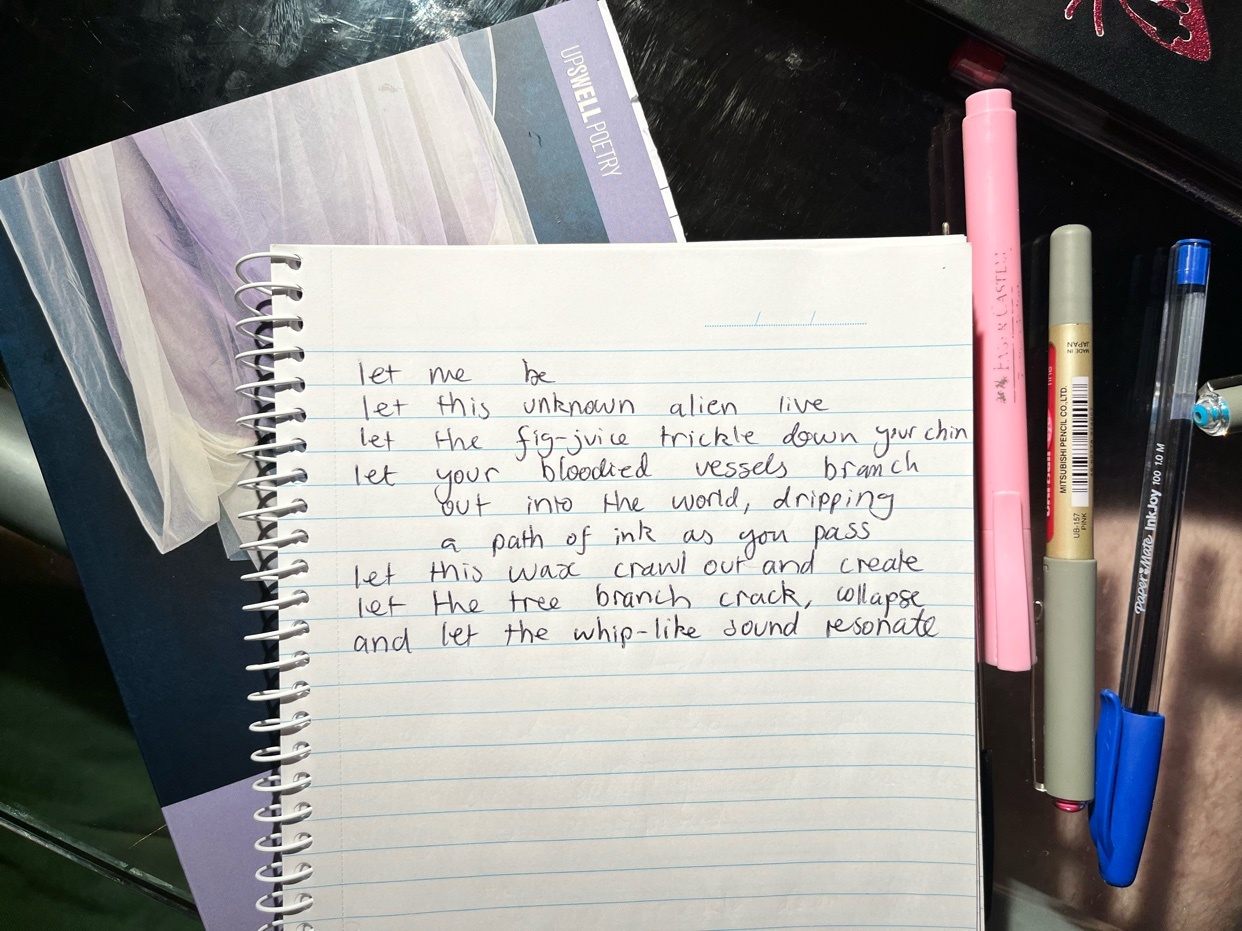 UPSWELL POETRY
let me be
let this unknown alien live
let the fig-juice trickle down your chin
let your bloodied vessels branch
out into the world, dripping
a path of ink as you pass
let this wax crawl out and create
let the tree branch crack, collapse
and let the whip-like sound resonate
FABER-CASTELL
MADE IN
JAPAN
fine
MITSUBISHI PENCIL CO.,LTD.
UB-157
PINK
Paper Mate InkJoy 100 1.0 M